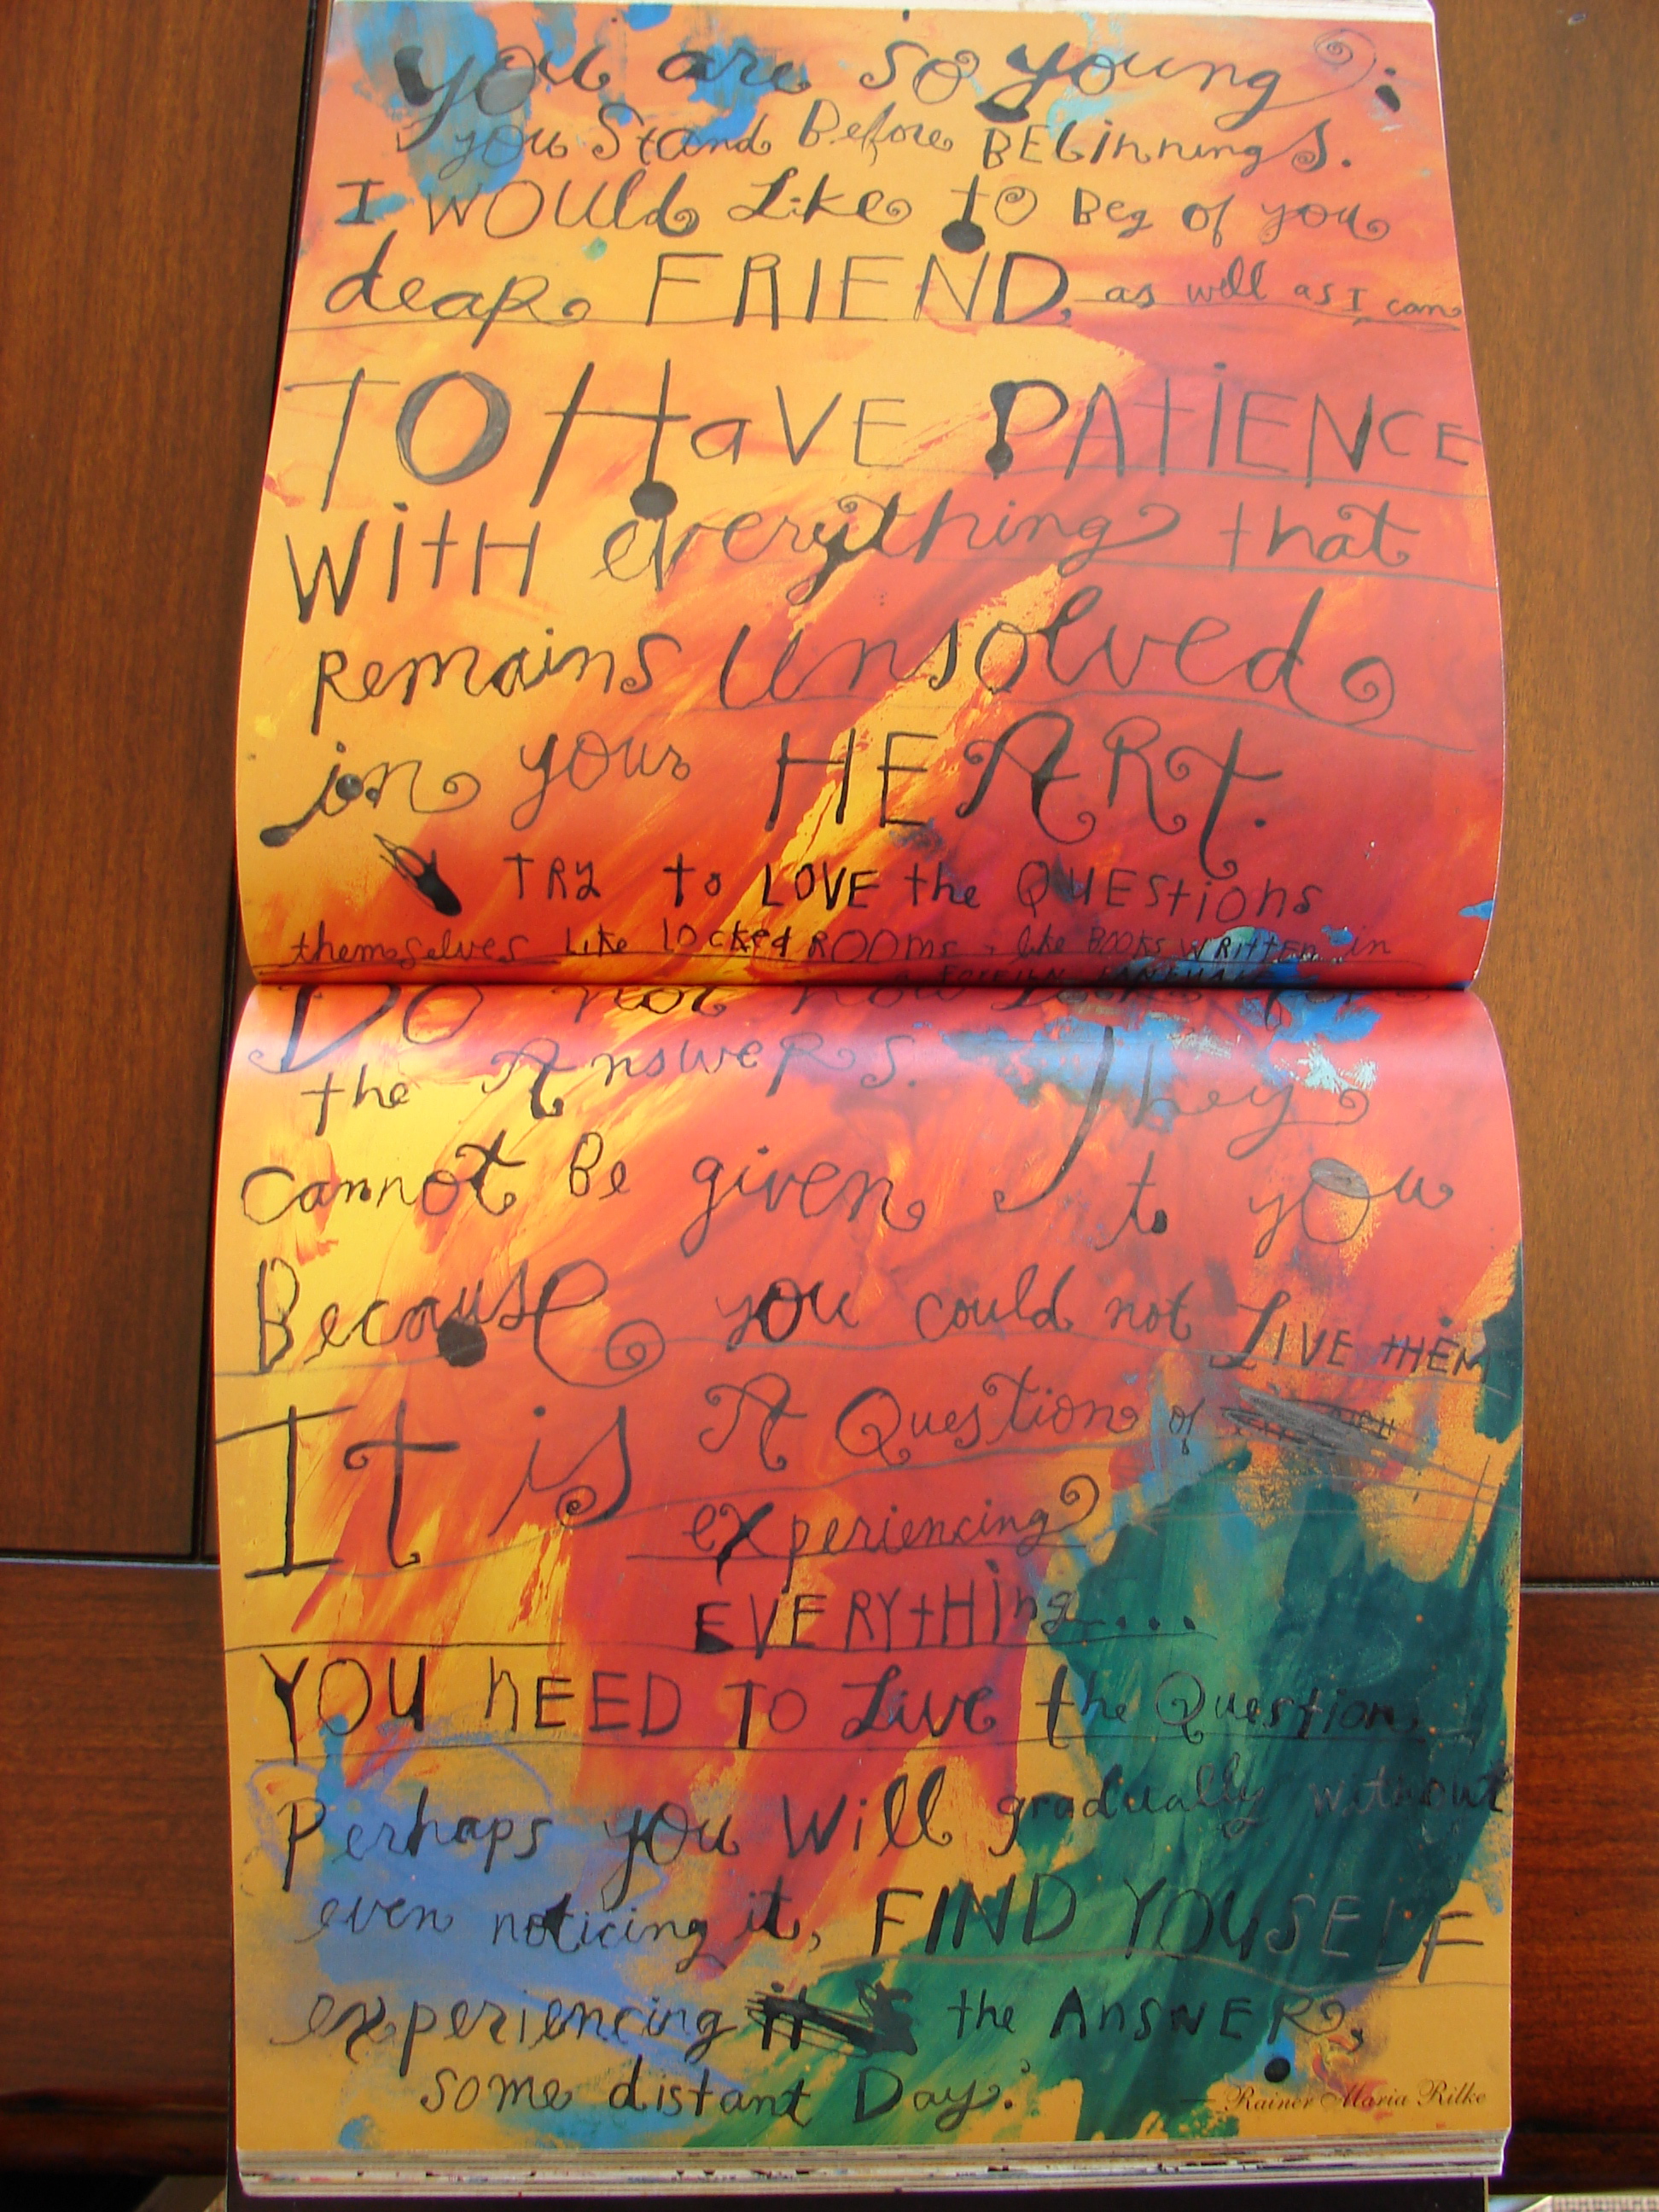 you are so young;
you Stand Before BEGinnings.
I WOUld Like to Beg of you
dear FRIEND, as well as I can
TO HaVE PATIENCE
WitH everything that
remains unsolved
in your HEART.
TRY to LOVE the QUEStions
themselves Like locked ROOms, like BOOKS WRITTEN in
a FOREIGN LANGUAGE
DO not now Look for
the Answers. They
cannot Be given to you
Because you could not LIVE tHEM
It is A Question of
experiencing
EVERYtHing....
YOU nEED TO Live the Question.
Perhaps you Will gradually without
even noticing it, FIND YOUSELF
experiencing it the AnSWER,
some distant Day.
— Rainer Maria Rilke